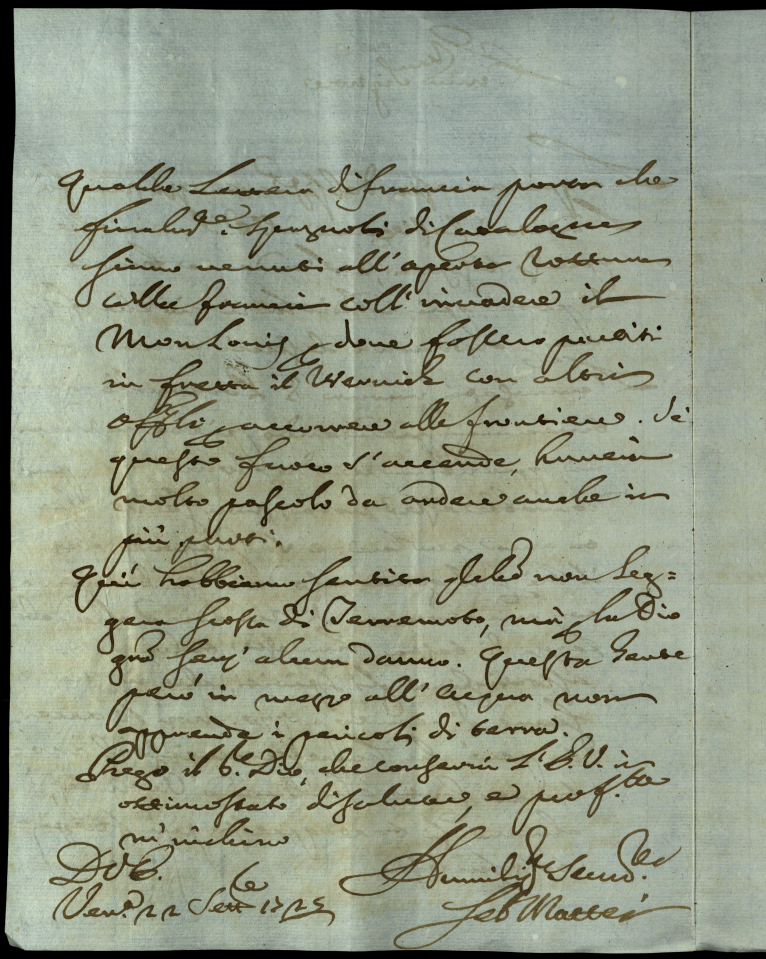 Qualche Lettera di francia porta che
finalmte. Spagnoli di Catalogna
siano venuti all' aperta rottura
colla francia coll' invadere il
Mon Louis, e dove fossero partiti
in fretta il Warnick con altri
Offli, accorrere alle frontiere. Sè
questo fuoco s'accende, haverà
molto pascolo da andare anche in
più parti.
Quì habbiamo sentita qlche non leg=
gera scossa di Terremoto, mà, lu Dio
grã senz' alcun danno. Questa gente
però in mezzo all' acqua non
apprende i pericoli di terra.
Prego il Sr. Dio, che conservi L'E.V. in
ottimo stato di salute, e prof.te
m'inchino
D V E.
Ven.a 22 Sett.e 1725
Humiliss. Serv.re
Seb Mattei